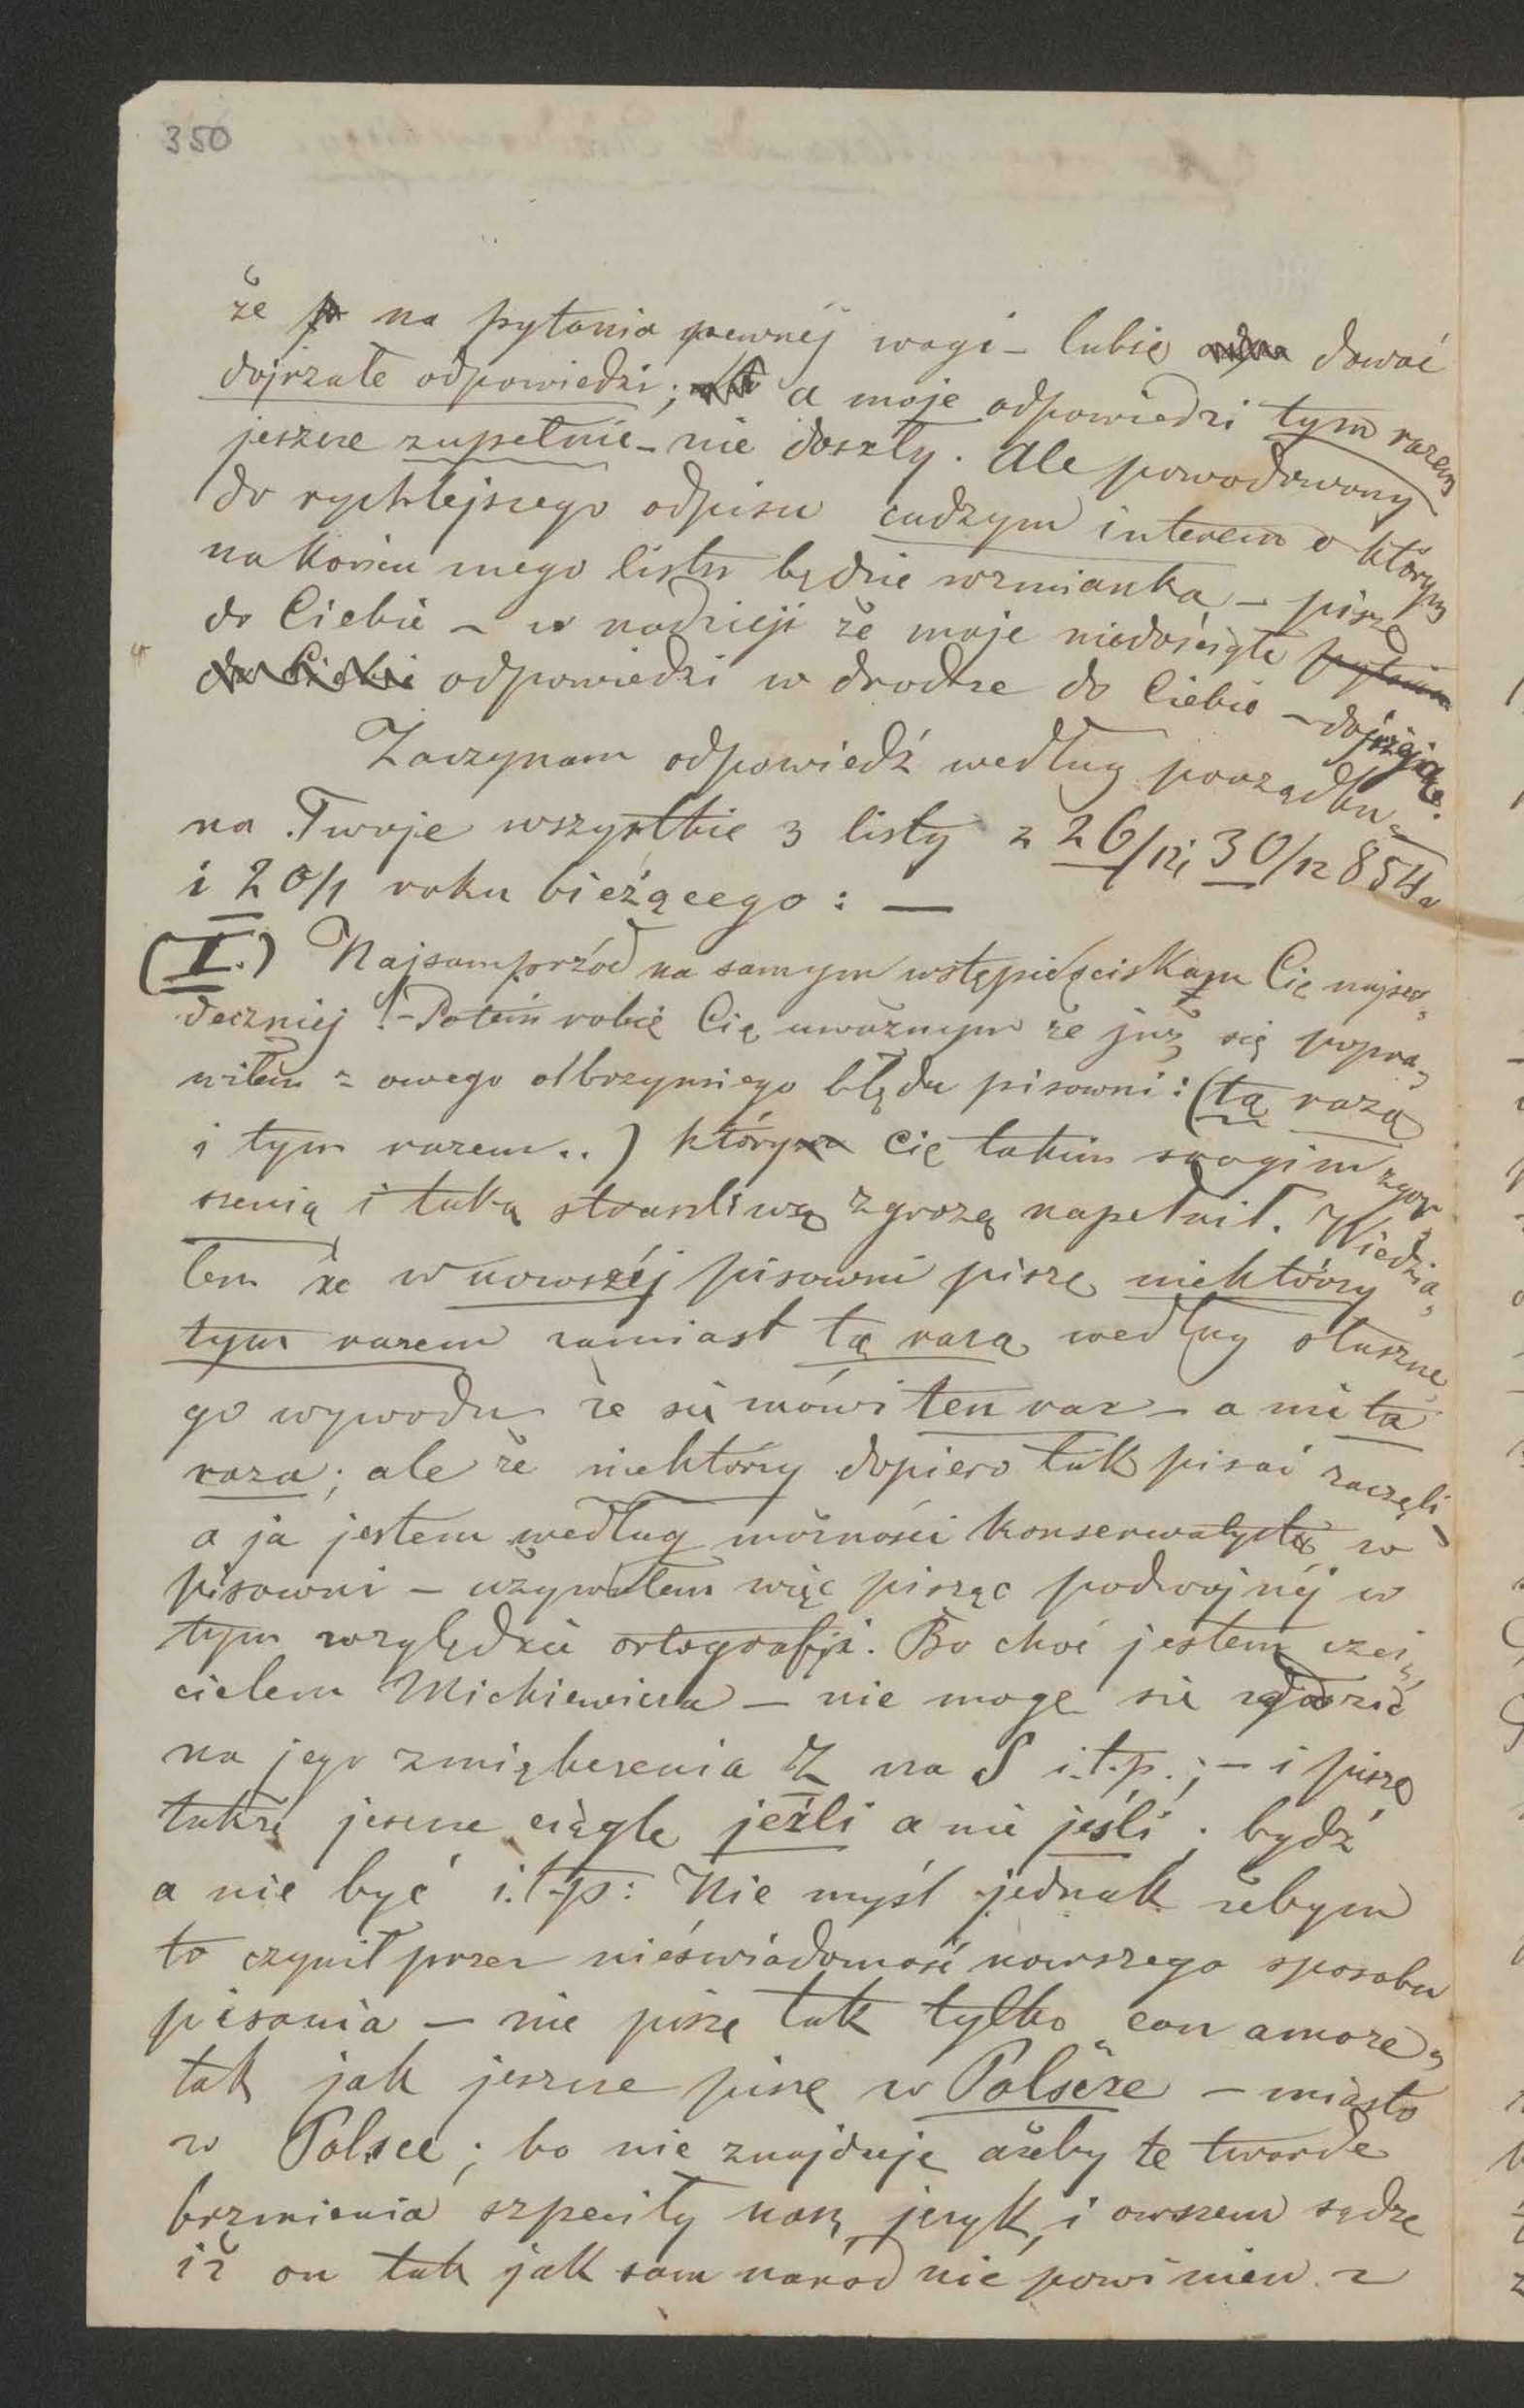 350
że na pytania pewnéj wagi – lubię dawać
dojrzałe odpowiedzi; a moje odpowiedzi tym razem
jeszcze zupełnie – nie doszły. Ale powodowany
do rychlejszego odpisu cudzym interesem o którym
na końcu mego listu będzie wzmianka – piszę
do Ciebie – w nadzieji że moje niedościgłe pytania
do Ciebie odpowiedzi w drodze do Ciebie – dojrzeją.
Zaczynam odpowiedź według porządku
na Twoje wszystkie 3 listy z 26/12, 30/12 854
i 20/1 roku bieżącego: —
(I.) Najsamprzód na samym wstępie ściskam Cię najser„
deczniej! – Potem robię Cię uważnym że już się popra„
wiłem z owego olbrzymiego błędu pisowni: (tą razą
i tym razem..) który Cię takim srogim zgor„
szenią i taką straszliwą zgrozą napełnił. Wiedzia„
łem że w nowszéj pisowni piszą niektórzy
tym razem zamiast tą razą według słuszne„
go wywodu że się mówi ten raz – a nie ta
raza; ale że niektórzy dopiero tak pisać zaczęli –
a ja jestem według możności konserwatystą w
pisowni – używałem więc pisząc podwójnéj w
tym względzie ortografji. Bo choć jestem czci„
cielem Mickiewicza – nie mogę się zgodzić
na jego zmiękczenia Z na S i.t.p.; – i piszę
także jeszcze ciągle jeźli a nie jeśli; bydź
a nie być i.t.p: Nie myśl jednak żebym
to czynił przez nieświadomość nowszego sposobu
pisania – nie piszę tak tylko „con amore„
tak jak jeszcze piszę w Polszcze – miasto
w Polsce; bo nie znajduję ażeby te twarde
brzmienia szpeciły nasz język, i owszem sądzę
iż on tak jak sam naród nie powinien z